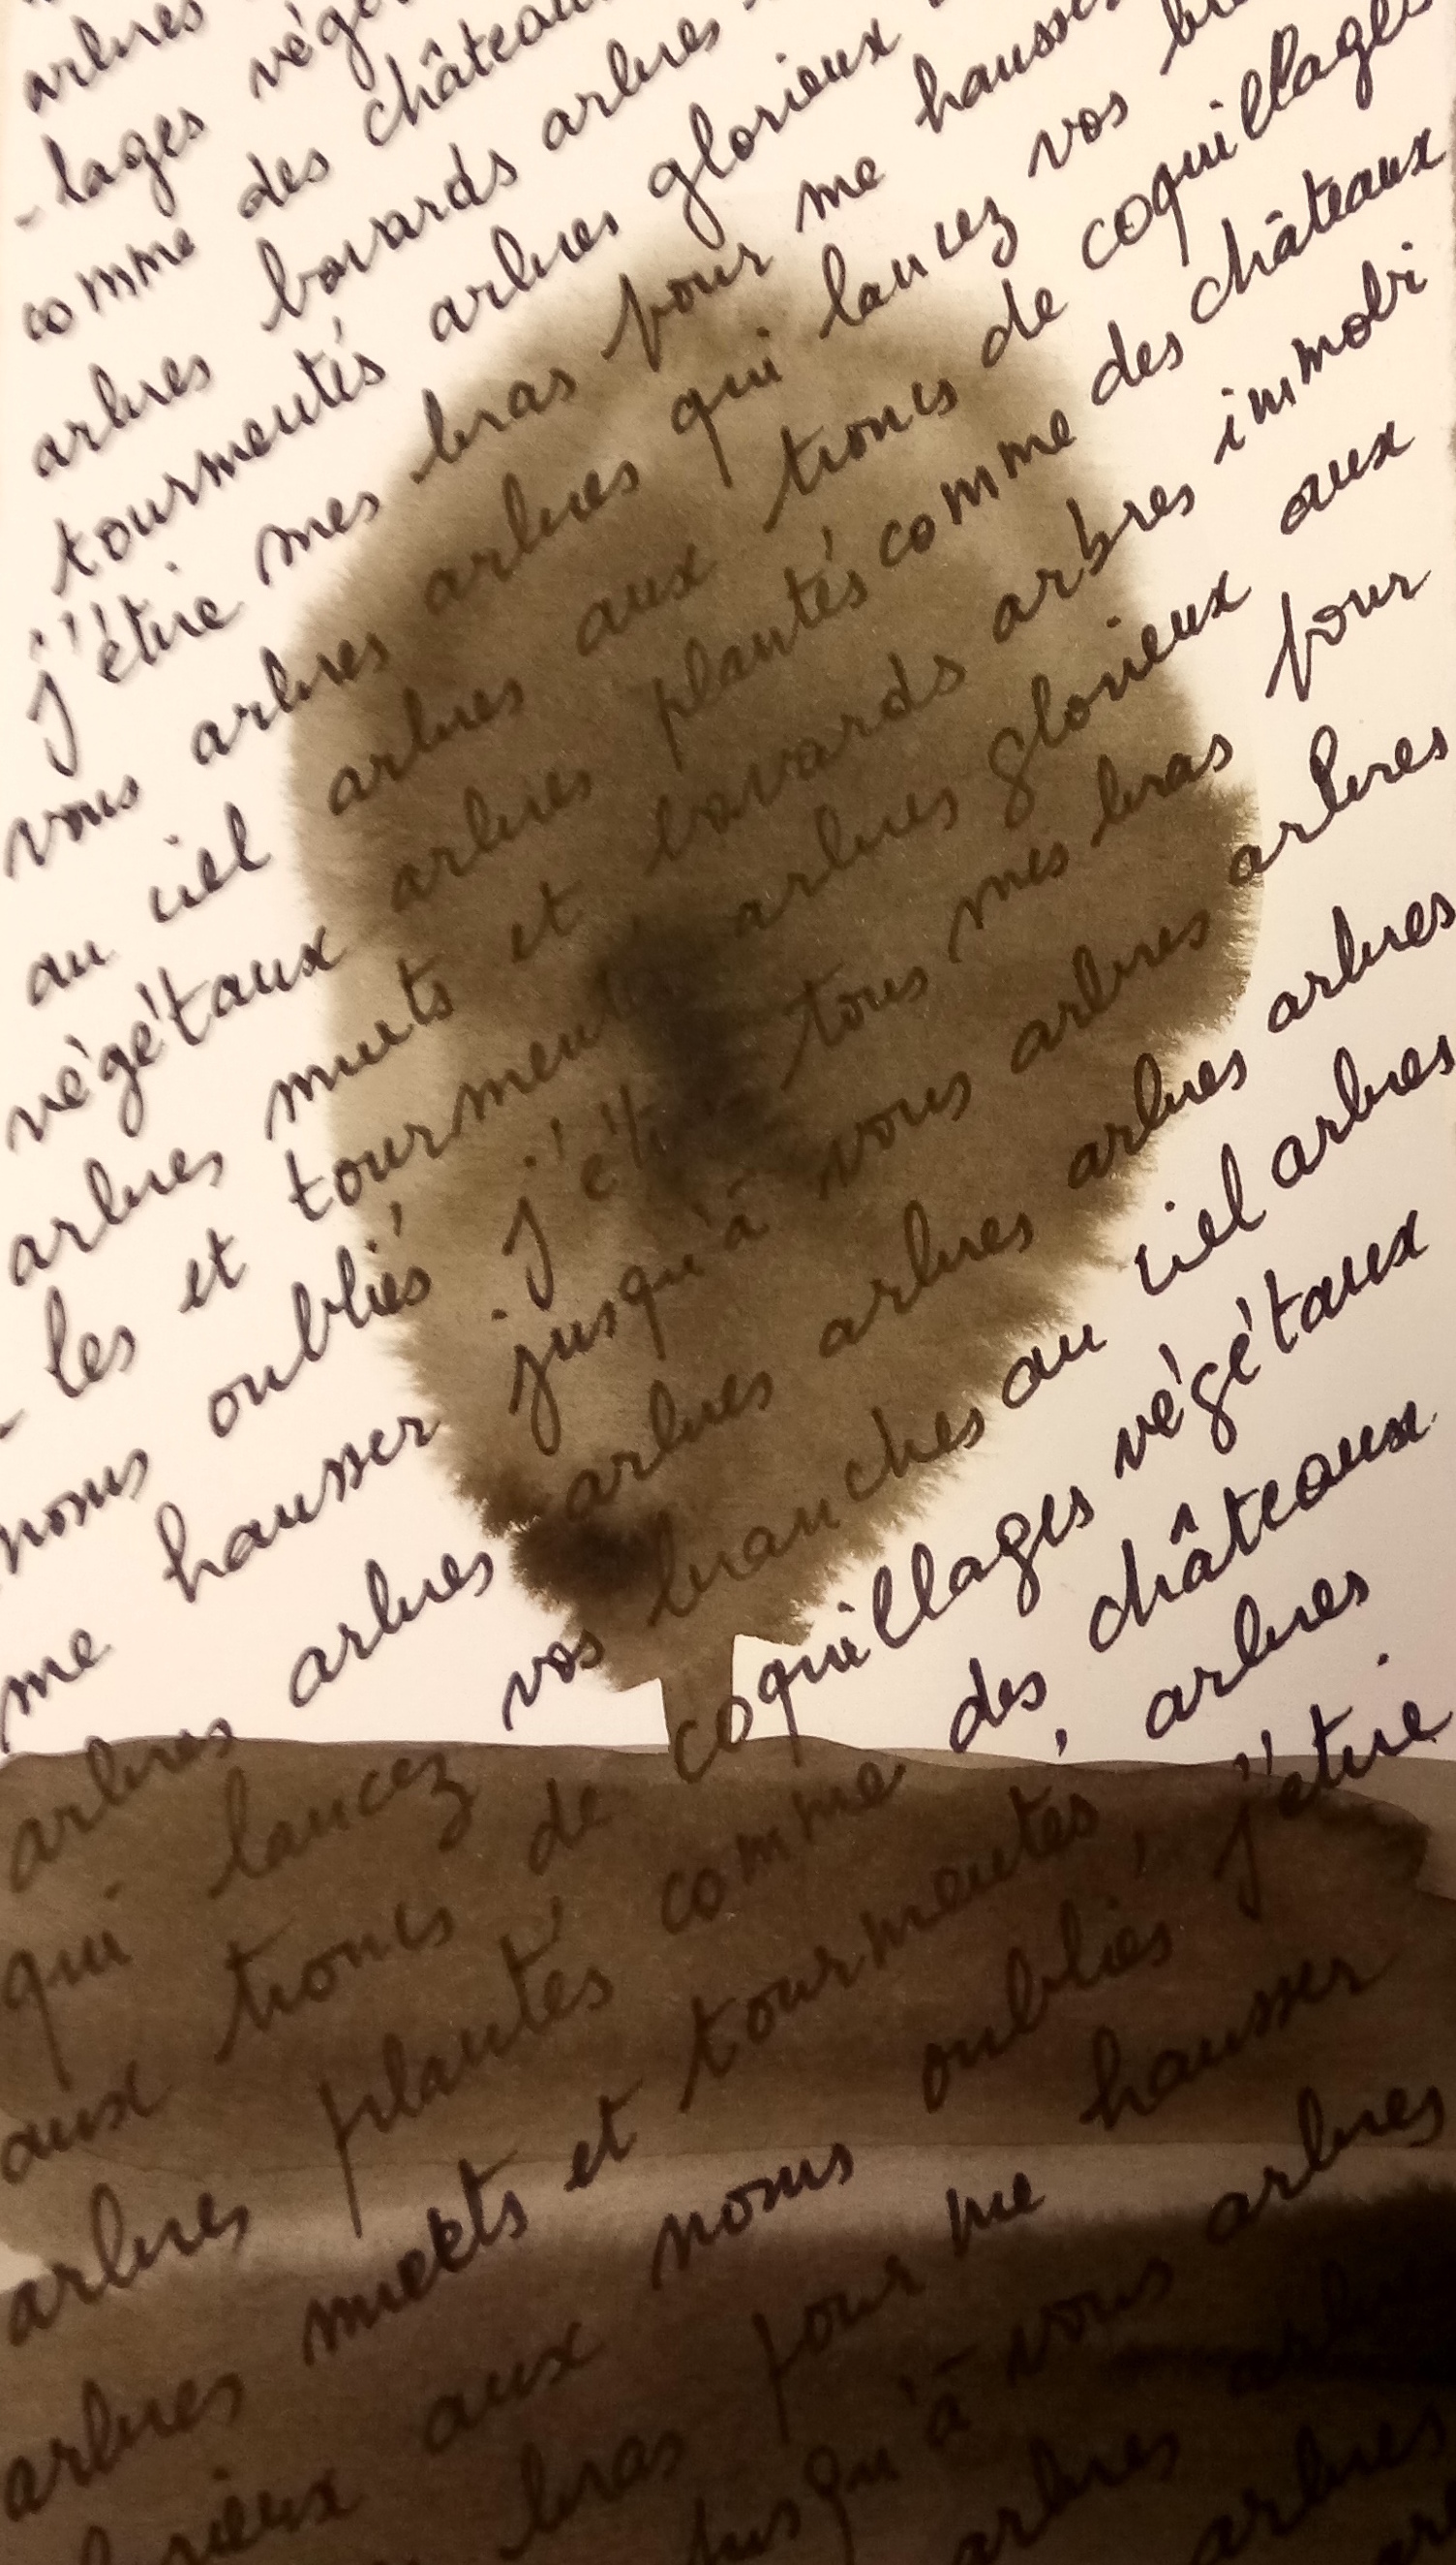 arbres
-lages végé
comme des châteaux
arbres bavards arbres
tourmentés arbres glorieux
j'étire mes bras pour me hausse
vous arbres arbres qui lancez vos
au ciel arbres aux troncs de coquillages
végétaux arbres plantés comme des châteaux
arbres muets et bavards arbres immobi
-les et tourmentés arbres glorieux aux
noms oubliés j'ét tous mes bras pour
me hausser jusqu'à vous arbres arbres
arbres arbres arbres arbres arbres arbres
qui lancez vos branches au ciel arbres
aux troncs de coquillages végétaux
arbres plantés comme des châteaux
arbres muets et tourmentés, arbres
rieux aux noms oubliés, j'étire
bras pour me hausser
jusqu'à vous arbres
arbres arbre
arbres arbres